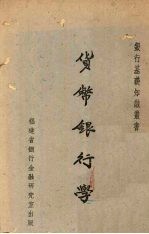 銀行基礎知識叢書
貨幣銀行學
福建省銀行金融研究室出版